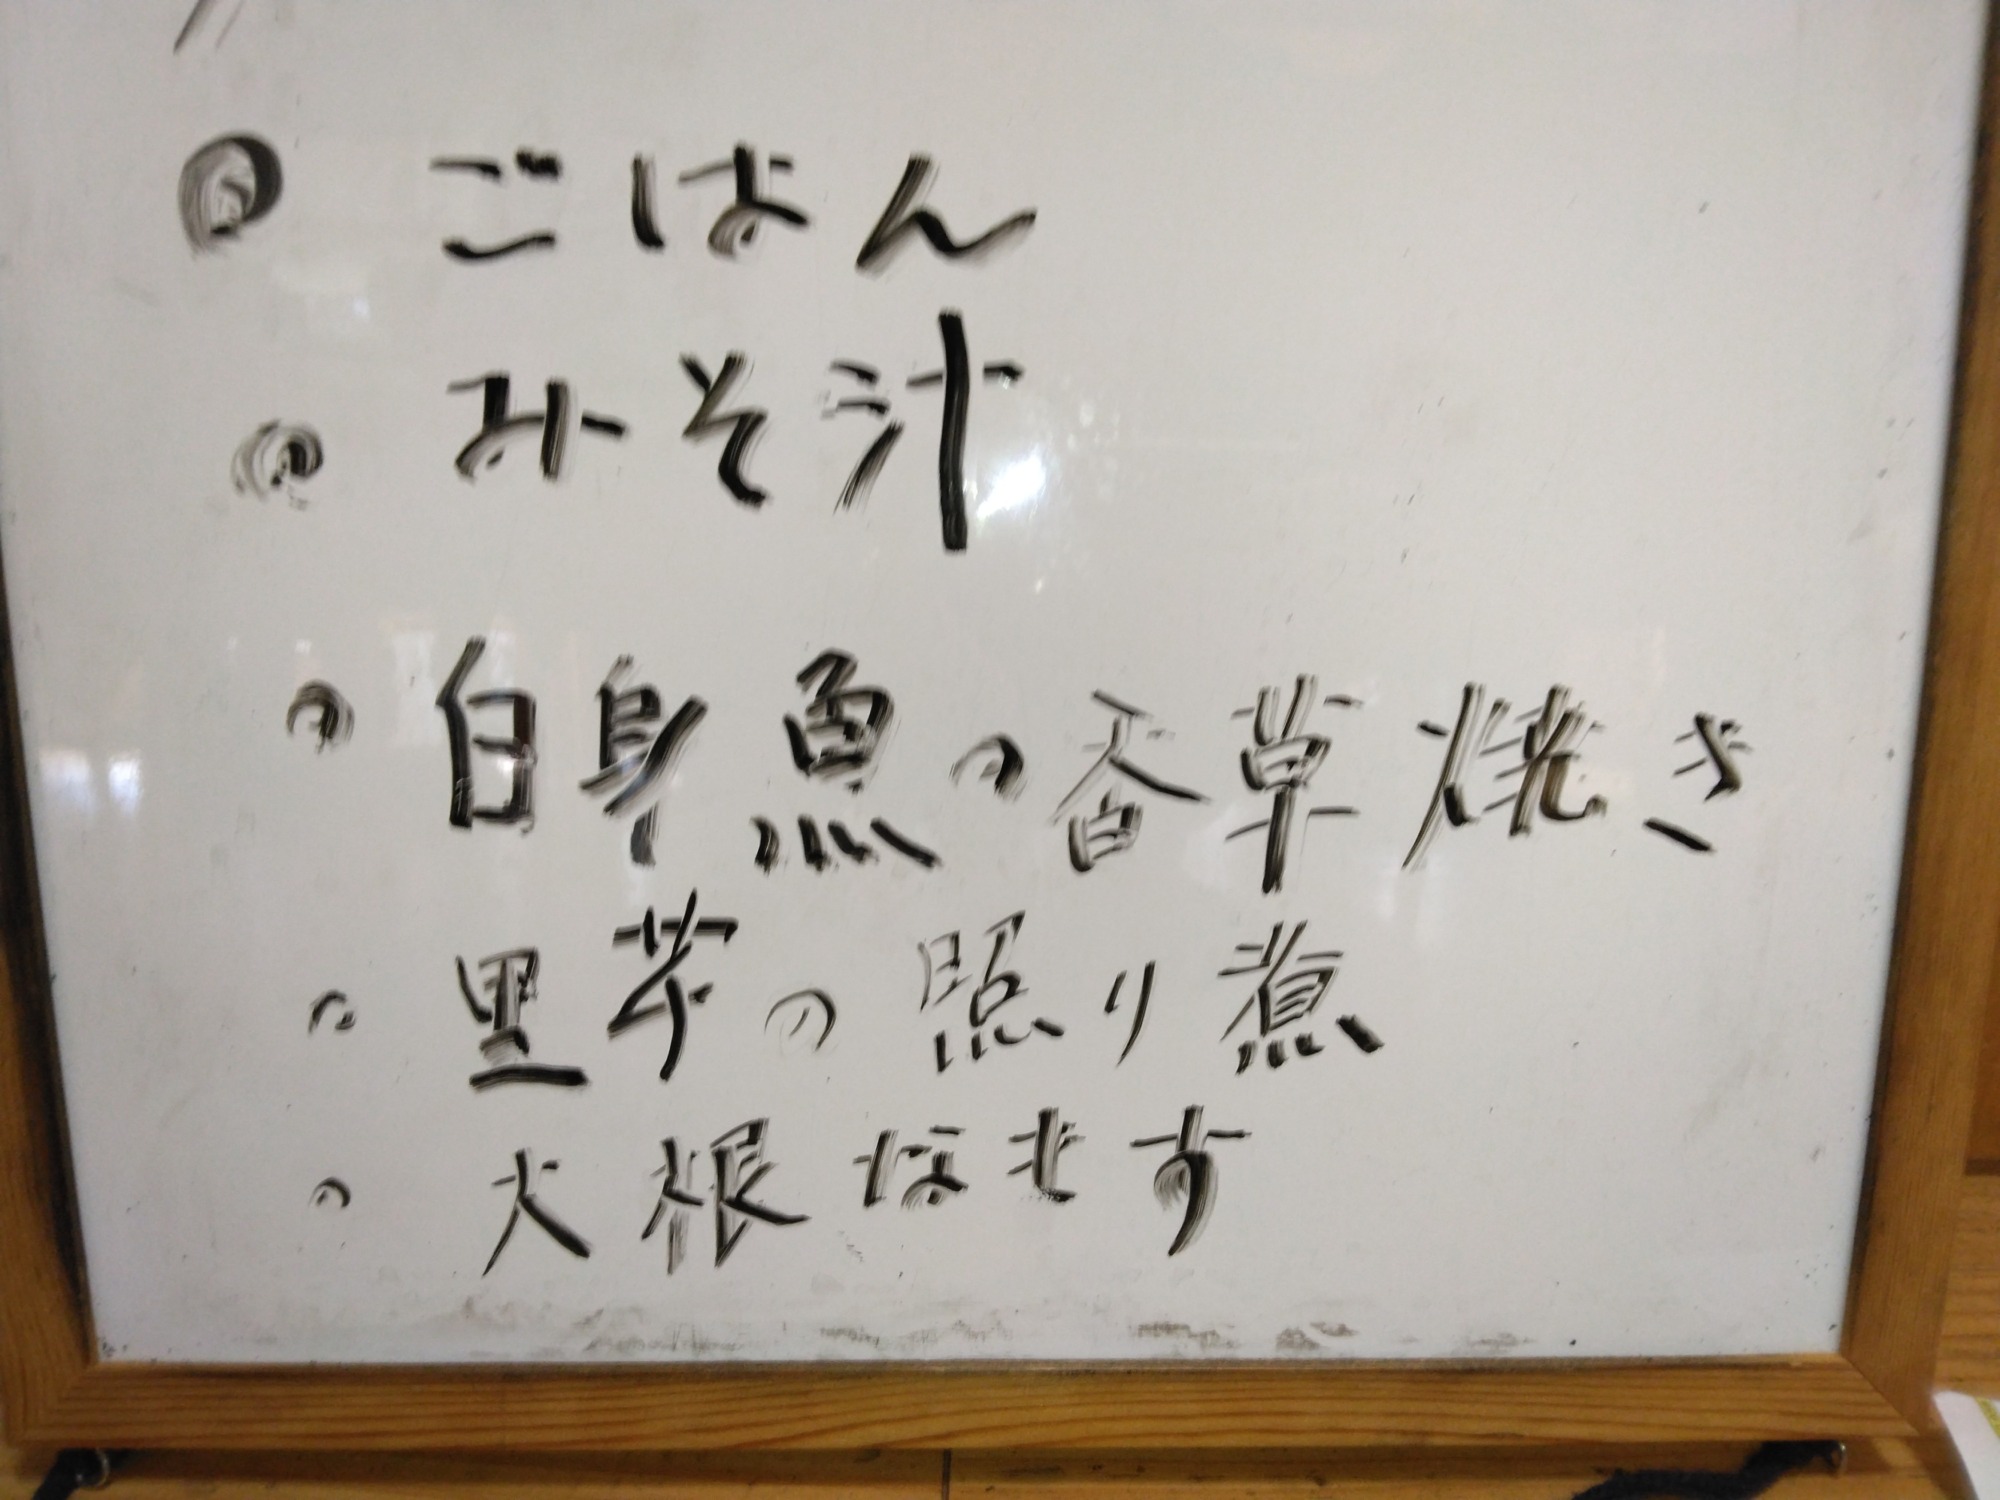 ・ごはん
・みそ汁
・白身魚の香草焼き
・里芋の照り煮
・大根なます